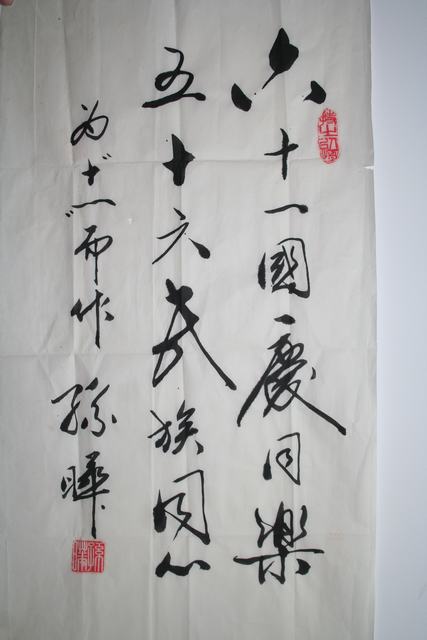 六十一國慶同樂
五十六民族同心
为“十一”而作 孫曄